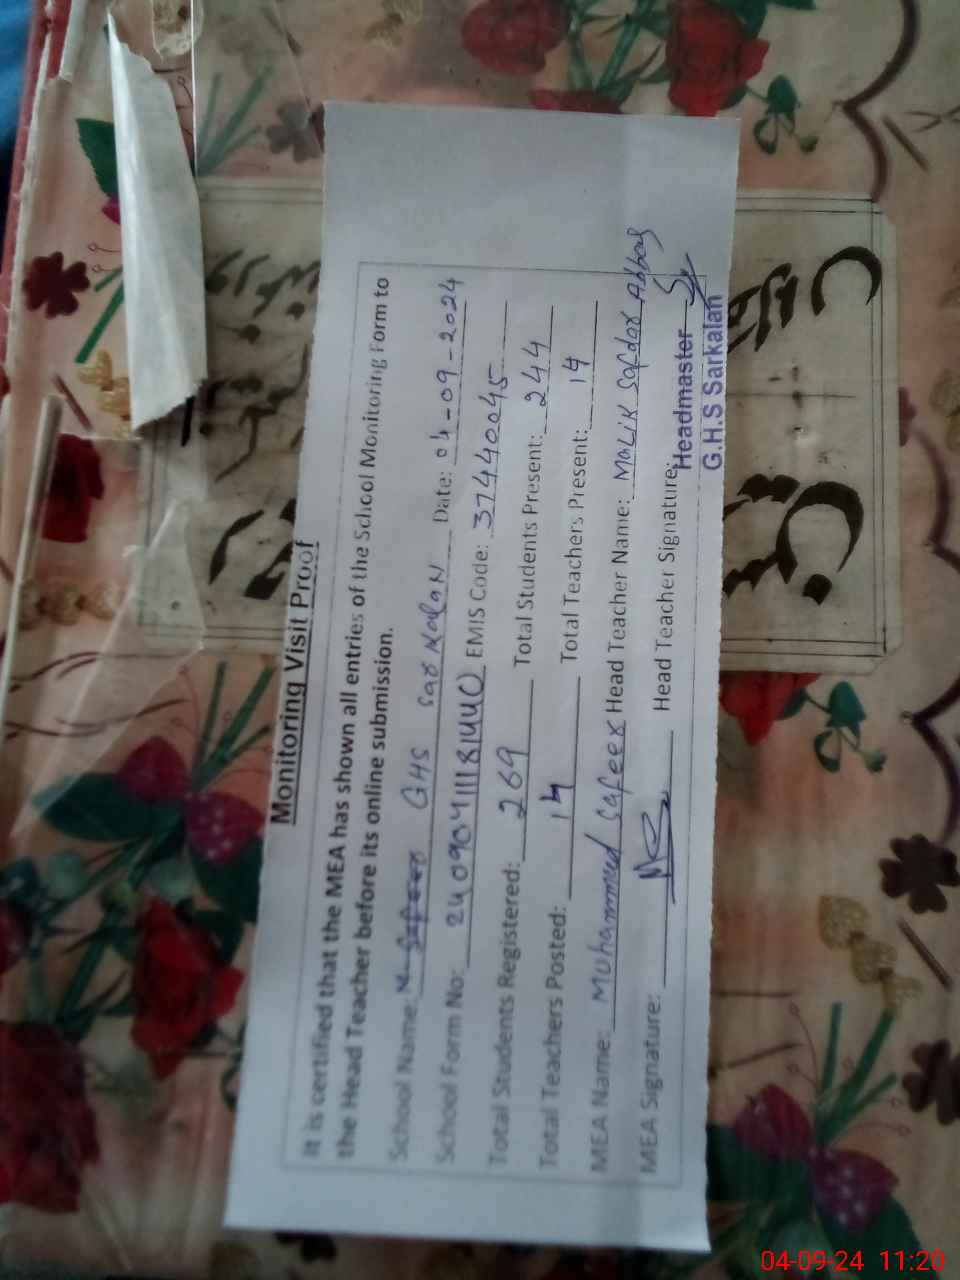 Monitoring Visit Proof
It is certified that the MEA has shown all entries of the School Monitoring Form to
the Head Teacher before its online submission.
School Name: GHS Sarkalan Date: 04-09-2024
School Form No: EMIS Code: 37440045
Total Students Registered: 269 Total Students Present: 244
Total Teachers Posted: 14 Total Teachers Present: 14
MEA Name: Muhammed Safeer Head Teacher Name: Malik Safdar Abbas
MEA Signature: Head Teacher Signature:
Headmaster
G.H.S Sarkalan
04-09-24 11:20